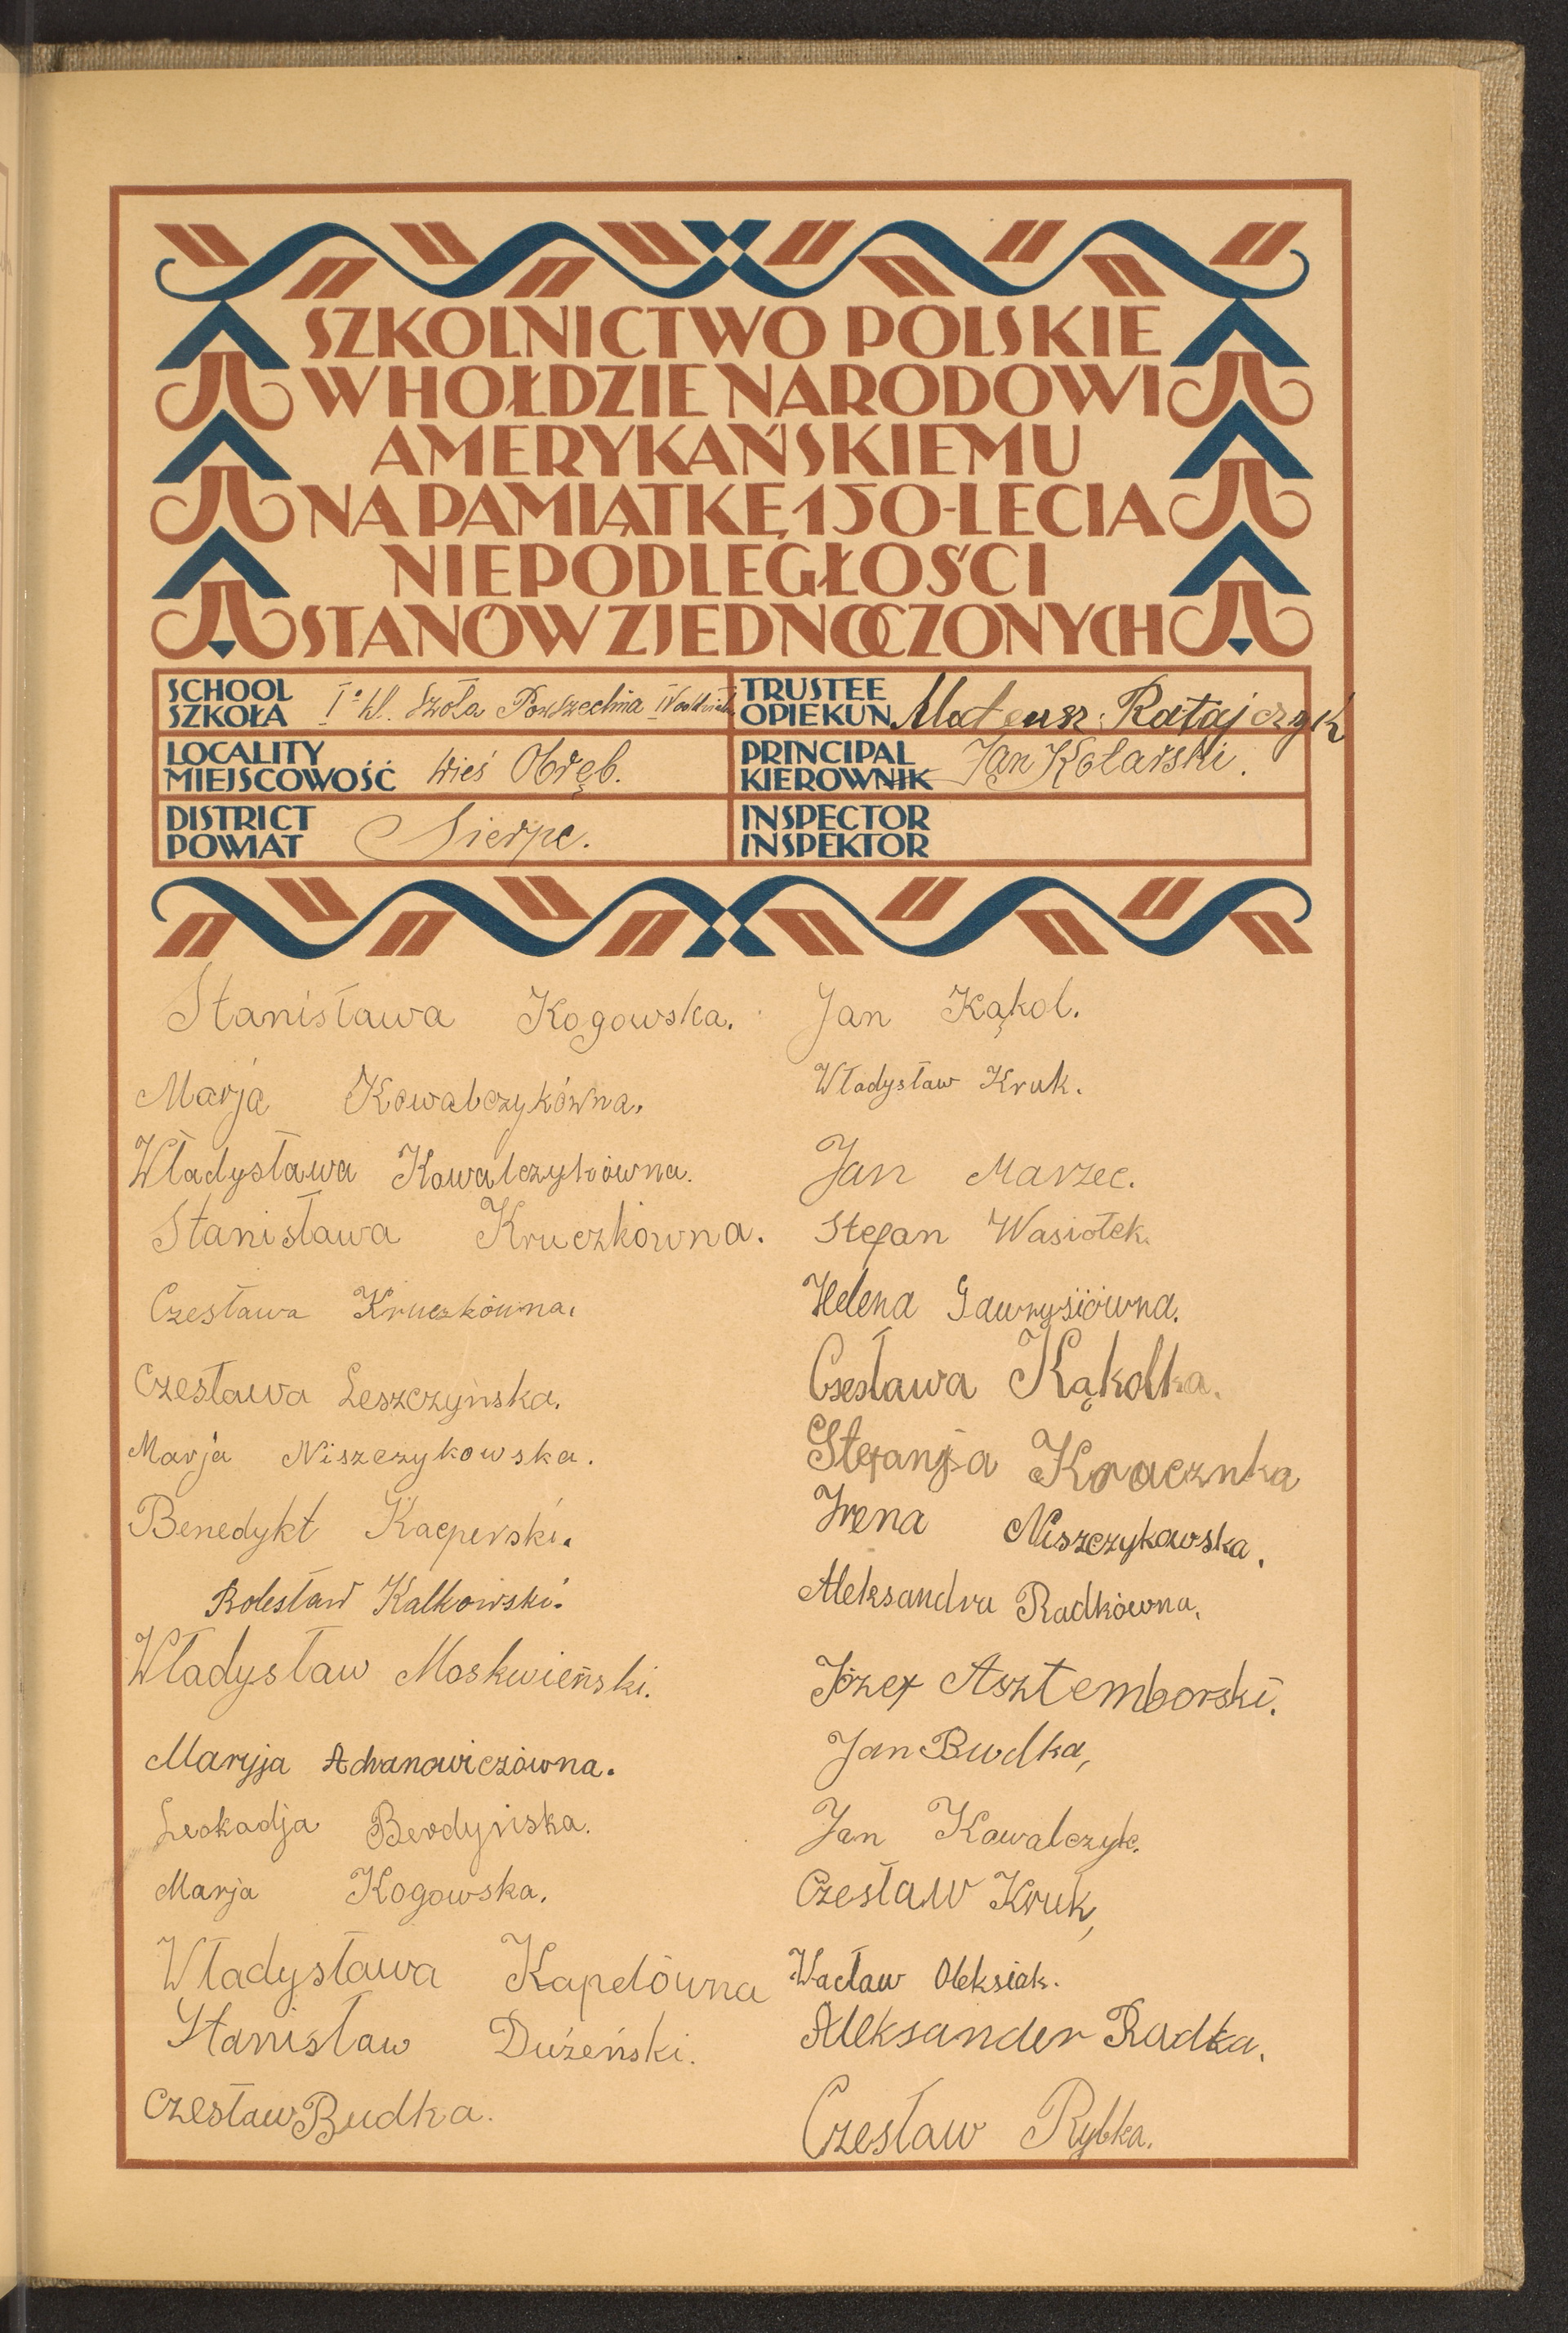 SZKOLNICTWO POLSKIE
W HOŁDZIE NARODOWI
AMERYKAŃSKIEMU
NA PAMIĄTKĘ 150-LECIA
NIEPODLEGŁOŚCI
STANÓW ZJEDNOCZONYCH
SCHOOL
SZKOŁA
Iº kl. Szoła Powszechna
TRUSTEE
OPIEKUN
Mateusz Ratajczyk
LOCALITY
MIEJSCOWOŚĆ
wieś Obręb.
PRINCIPAL
KIEROWNIK
Jan Kolarski.
DISTRICT
POWIAT
Sierpc.
INSPECTOR
INSPEKTOR
Stanisława Kogowska.
Marja Kowalczykówna.
Władysława Kowalczykówna.
Stanisława Kruczkówna.
Czesława Kruczkówna.
Czesława Leszczyńska.
Marja Niszczykowska.
Benedykt Kacperski.
Bolesław Kalkowski.
Władysław Moskwieński.
Maryja Adranowiczówna.
Leokadja Berdyńska.
Marja Kogowska.
Władysława Kapelówna
Stanisław Dużeński.
Czesław Budka.
Jan Kąkol.
Władysław Kruk.
Jan Marzec.
Stefan Wasiołek.
Helena Gawrysiówna.
Czesława Kąkolka.
Stefanja
Irena Niszczykowska.
Aleksandra Radkówna.
Józef Asztemborski.
Jan Budka,
Jan Kowalczyk.
Czesław Kruk,
Wacław Oleksiak.
Aleksander Radka.
Czesław Rybka.